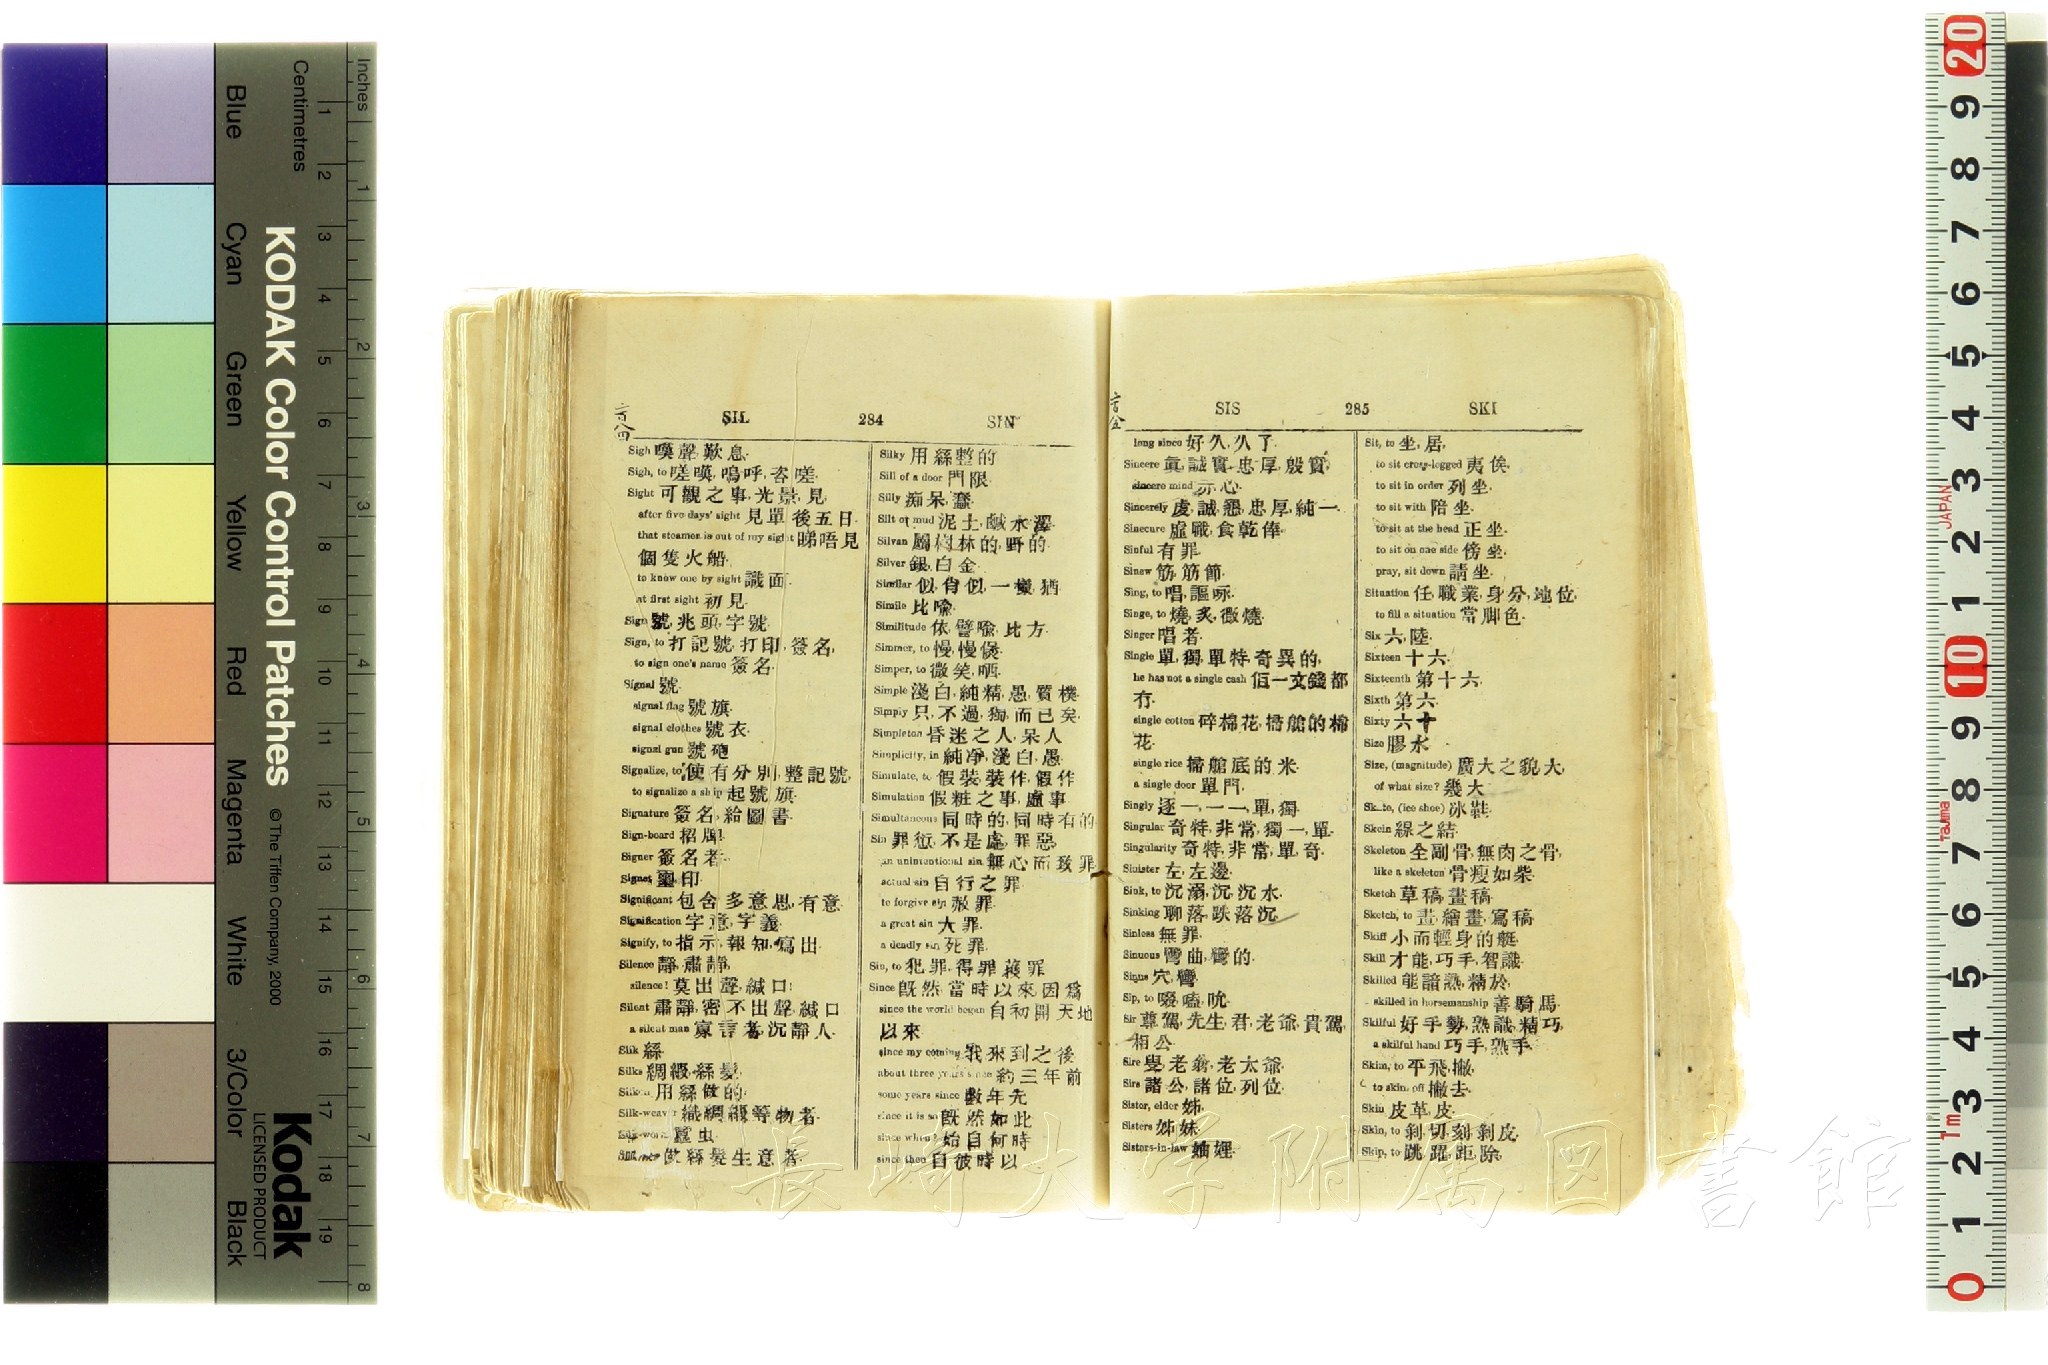 SIL 284 SIN
Sigh 嘆聲,歎息.
Sigh, to 嗟嘆,嗚呼,咨嗟.
Sight 可觀之事,光景,見,
after five days' sight 見單後五日.
that steamer is out of my sight 睇唔見
個隻火船.
to know one by sight 識面.
at first sight 初見.
Sign 號,兆頭,字號.
Sign, to 打記號,打印,簽名,
to sign one's name 簽名.
Signal 號.
signal flag 號旗.
signal clothes 號衣.
signal gun 號砲
Signalize, to 使有分別,整記號,
to signalize a ship 起號旗.
Signature 簽名,給圖書.
Sign-board 招牌.
Signer 簽名者.
Signet 璽印.
Significant 包含多意思,有意.
Signification 字意,字義.
Signify, to 指示,報知,寫出.
Silence 靜,肅靜,
silence! 莫出聲,緘口!
Silent 肅靜,密不出聲,緘口
a silent man 寡言者,沉靜人.
Silk 絲
Silks 綢緞,絲髮.
用絲做的.
Silk-weaver 織綢緞等物者.
蠶虫.
做絲髮生意者.
Silky 用絲整的
Sill of a door 門限.
Silly 痴呆,蠢.
Silt or mud 泥土,鹹水澤.
Silvan 屬樹林的,野的.
Silver 銀,白金.
Similar 似,肖似,一樣,猶.
Simile 比喩.
Similitude 依,譬喩,比方.
Simmer, to 慢慢煲.
Simper, to 微笑,哂.
Simple 淺白,純精,愚,質樸.
Simply 只,不過,獨,而已矣.
Simpleton 昏迷之人,呆人
Simplicity, in 純淨,淺白,愚.
Simulate, to 假裝,裝作,假作
Simulation 假粧之事,虛事.
Simultaneous 同時的,同時有的.
Sin 罪愆,不是處,罪惡.
an unintentional sin 無心而致罪
actual sin 自行之罪.
to forgive sin 赦罪.
a great sin 大罪.
a deadly sin 死罪.
Sin, to 犯罪,得罪,獲罪
Since 旣然,當時以來,因爲
since the world began 自初開天地
以來
since my coming 我來到之後
about three years since 約三年前
some years since 數年先
since it is so 旣然如此
since when? 始自何時
since then 自彼時以
SIS 285 SKI
long since 好久,久了.
Sincere 眞,誠實,忠厚,殷實,
sincere mind 赤心.
Sincerely 虔,誠,懇,忠厚,純一.
Sinecure 虛職,食乾俸.
Sinful 有罪.
Sinew 筋,筋節.
Sing, to 唱,謳,咏.
Singe, to 燒,炙,微燒.
Singer 唱者.
Single 單,獨,單特,奇異的,
he has not a single cash 佢一文錢都
冇.
single cotton 碎棉花,掃艙的棉
花.
single rice 掃艙底的米.
a single door 單門.
Singly 逐一,一一,單,獨.
Singular 奇特,非常,獨一,單.
Singularity 奇特,非常,單,奇.
Sinister 左,左邊.
Sink, to 沉溺,沉,沉水.
Sinking 聊落,跌落沉
Sinless 無罪.
Sinuous 彎曲,彎的.
Sinus 穴,彎.
Sip, to 啜,嗑,吮.
Sir 尊駕,先生,君,老爺,貴駕,
相公.
Sire 叟,老翁,老太爺.
Sirs 諸公,諸位,列位.
Sister, elder 姊.
Sisters 姊妹.
Sisters-in-law 妯娌.
Sit, to 坐,居,
to sit cross-legged 夷俟.
to sit in order 列坐.
to sit with 陪坐.
to sit at the head 正坐.
to sit on one side 傍坐.
pray, sit down 請坐.
Situation 任,職業,身分,地位,
to fill a situation 當脚色.
Six 六,陸.
Sixteen 十六.
Sixteenth 第十六,
Sixth 第六.
Sixty 六十
Size 膠水.
Size, (magnitude) 廣大之貌,大,
of what size? 幾大.
Skate, (ice shoe) 冰鞋.
Skein 線之結.
Skeleton 全副骨,無肉之骨,
like a skeleton 骨瘦如柴.
Sketch 草稿,畫稿.
Sketch, to 畫,繪畫,寫稿.
Skiff 小而輕身的艇.
Skill 才能,巧手,智識.
Skilled 能諳熟,精於,
skilled in horsemanship 善騎馬.
Skilful 好手勢,熟識,精巧,
a skilful hand 巧手,熟手.
Skim, to 平飛,撇,
to skim off 撇去.
Skin 皮革,皮.
Skin, to 剝,切,刻,剝皮.
Skip, to 跳躍,距,除.
KODAK Color Control Patches
© The Tiffen Company, 2000
Kodak
LICENSED PRODUCT
Inches
Centimetres
Blue Cyan Green Yellow Red Magenta White 3/Color Black
JAPAN
Tajima
1m
長崎大学附属図書館